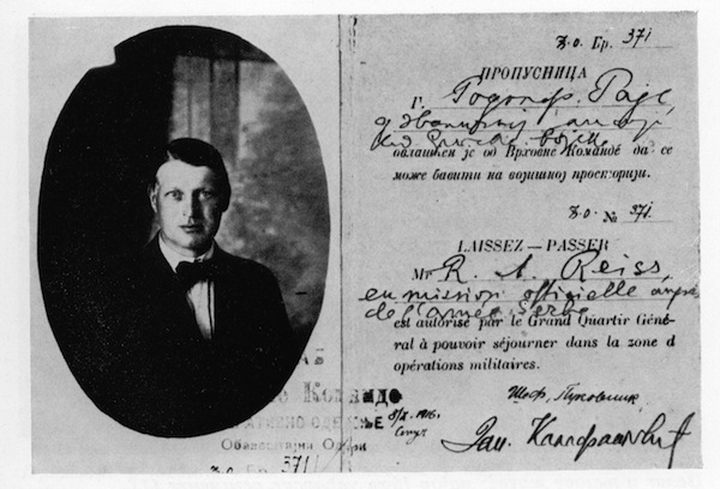 З.О. Бр. 371
ПРОПУСНИЦА
Г. Родолф. Рајс,
у званичној
код Српске војске
овлашћен је од Врховне Команде да се
може бавити на војишној просторији.
З.О. № 371
LAISSEZ — PASSER
Mr R. A. Reiss,
en mission officielle auprès
de l'armée Serbe
est autorisé par le Grand Quartir Géné-
ral à pouvoir séjourner dans la zone d
opérations militaires.
Шеф, Пуковник
Дан. Калафатовић
Командо
Обавештајни Одсек
З.О. 371